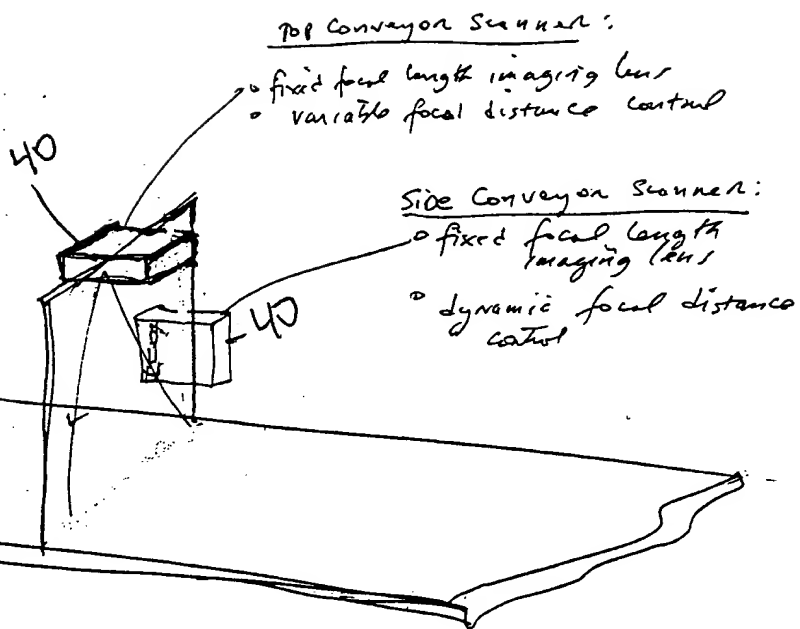 Top Conveyor Scanner:
° fixed focal length imaging lens
° variable focal distance control
40
Side Conveyor Scanner:
° fixed focal length
imaging lens
° dynamic focal distance
control
40